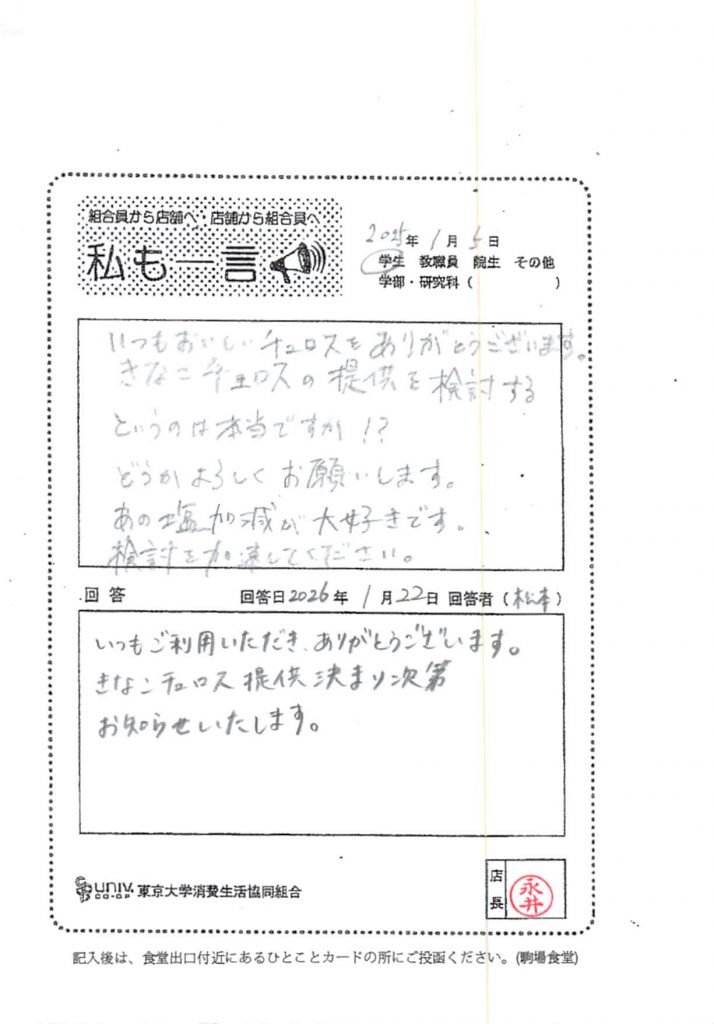 組合員から店舗へ・店舗から組合員へ
私も一言
2025年1月5日
学生 教職員 院生 その他
学部・研究科( )
いつもおいしいチュロスをありがとうございます。
きなこチュロスの提供を検討する
というのは本当ですか!?
どうかよろしくお願いします。
あの塩加減が大好きです。
検討を加速してください。
回答 回答日2026年1月22日 回答者(松本)
いつもご利用いただき、ありがとうございます。
きなこチュロス提供決まり次第
お知らせいたします。
univ. CO-OP 東京大学消費生活協同組合
店長 永井
記入後は、食堂出口付近にあるひとことカードの所にご投函ください。(駒場食堂)